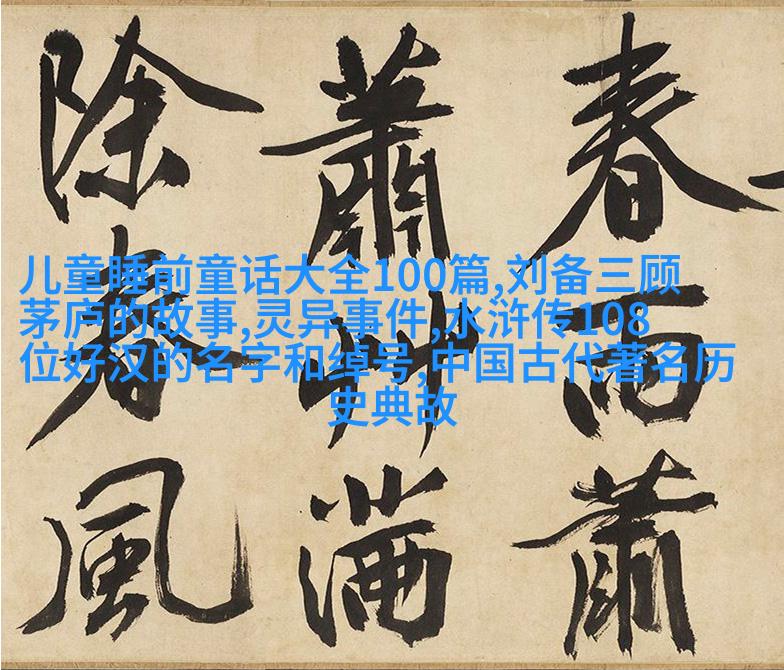 春雨蕭
蕭艸滿
除春風
儿童睡前童话大全100篇,刘备三顾
茅庐的故事,灵异事件,水浒传108
位好汉的名字和绰号,中国古代著名历
史典故